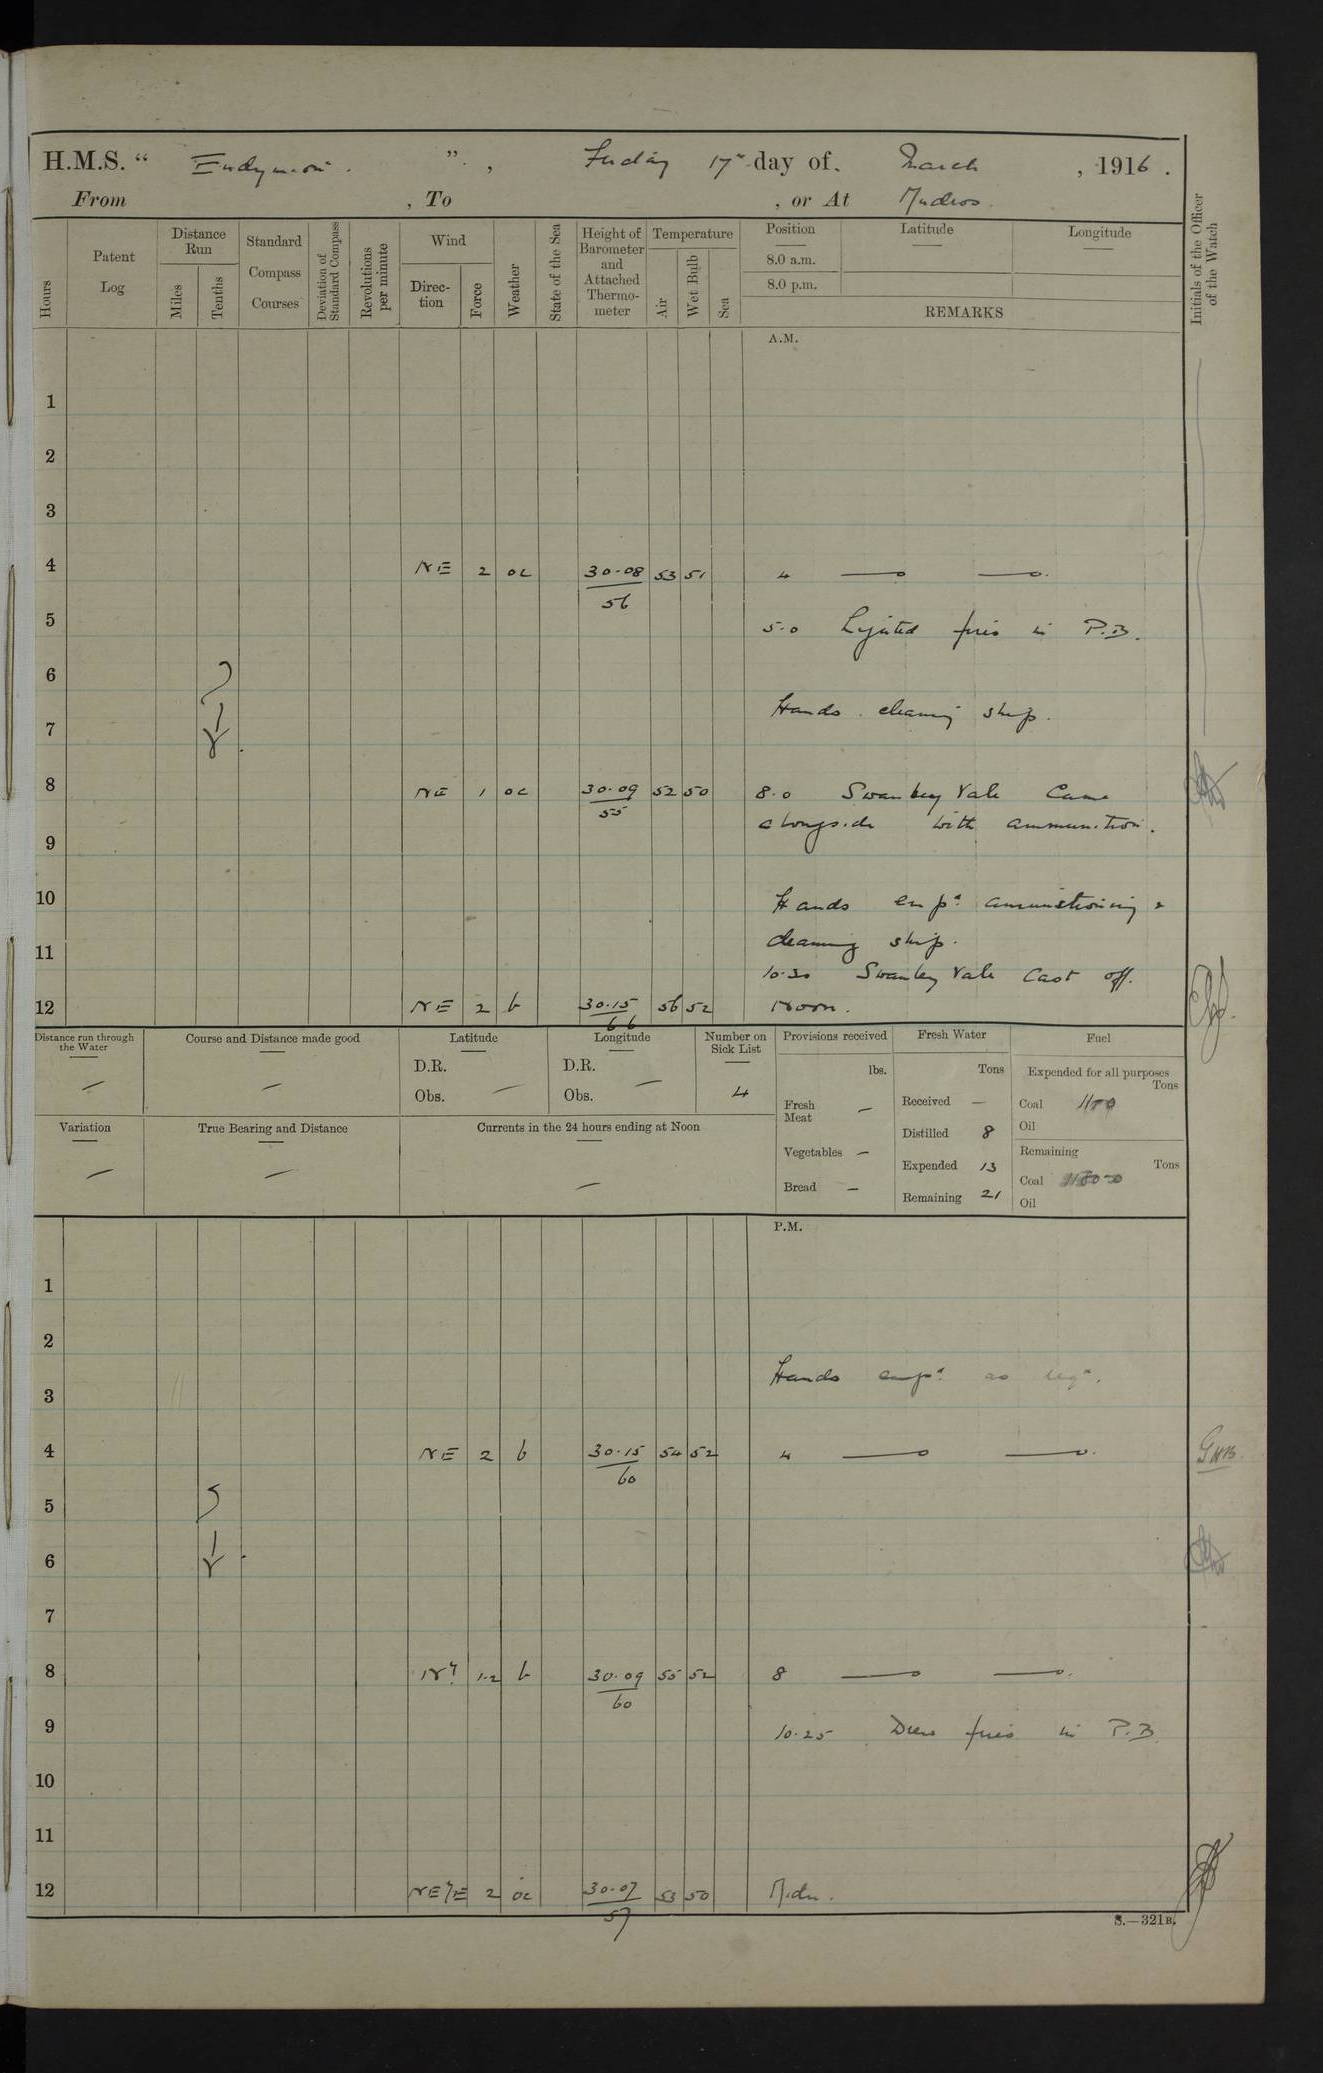 H.M.S. " Endymion. ". , Friday 17th day of. March , 1916.
From , To , or At Mudros.
Hours
Patent Log
Distance Run
Miles
Tenths
Standard Compass Courses
Deviation of Standard Compass
Revolutions per minute
Wind
Direction
Force
Weather
State of the Sea
Height of Barometer and Attached Thermometer
Temperature
Air
Wet Bulb
Sea
Position
8.0 a.m.
8.0 p.m.
Latitude
Longitude
REMARKS
Initials of the Officer of the Watch
A.M.
1
2
3
4 NE 2 oc 30.08 53 51 4
56
5 5.0 Lighted fires in P.B.
6
Hands cleaning ship.
7
8 NE 1 oc 30.09 52 50 8.0 Swanley Vale Came
55
alongside with ammunition.
9
10 Hands emp'd ammunitioning &
cleaning ship.
11
10.30 Swanley Vale Cast off.
12 NE 2 b 30.15 56 52 Noon.
66
Distance run through the Water
Course and Distance made good
Latitude
D.R.
Obs.
Longitude
D.R.
Obs.
Number on Sick List
4
Provisions received
lbs.
Fresh Meat —
Vegetables —
Bread —
Fresh Water
Tons
Received —
Distilled 8
Expended 13
Remaining 21
Fuel
Expended for all purposes
Tons
Coal
Oil
Remaining
Tons
Coal
Oil
Variation
True Bearing and Distance
Currents in the 24 hours ending at Noon
P.M.
1
2
Hands emp'd as req'd.
3
4 NE 2 b 30.15 54 52 4 GHB.
60
5
6
7
8 1-2 b 30.09 55 52 8
60
9 10.25 Drew fires in P.B.
10
11
12 2 oc 30.07 53 50 Midn.
57
S.—321B.